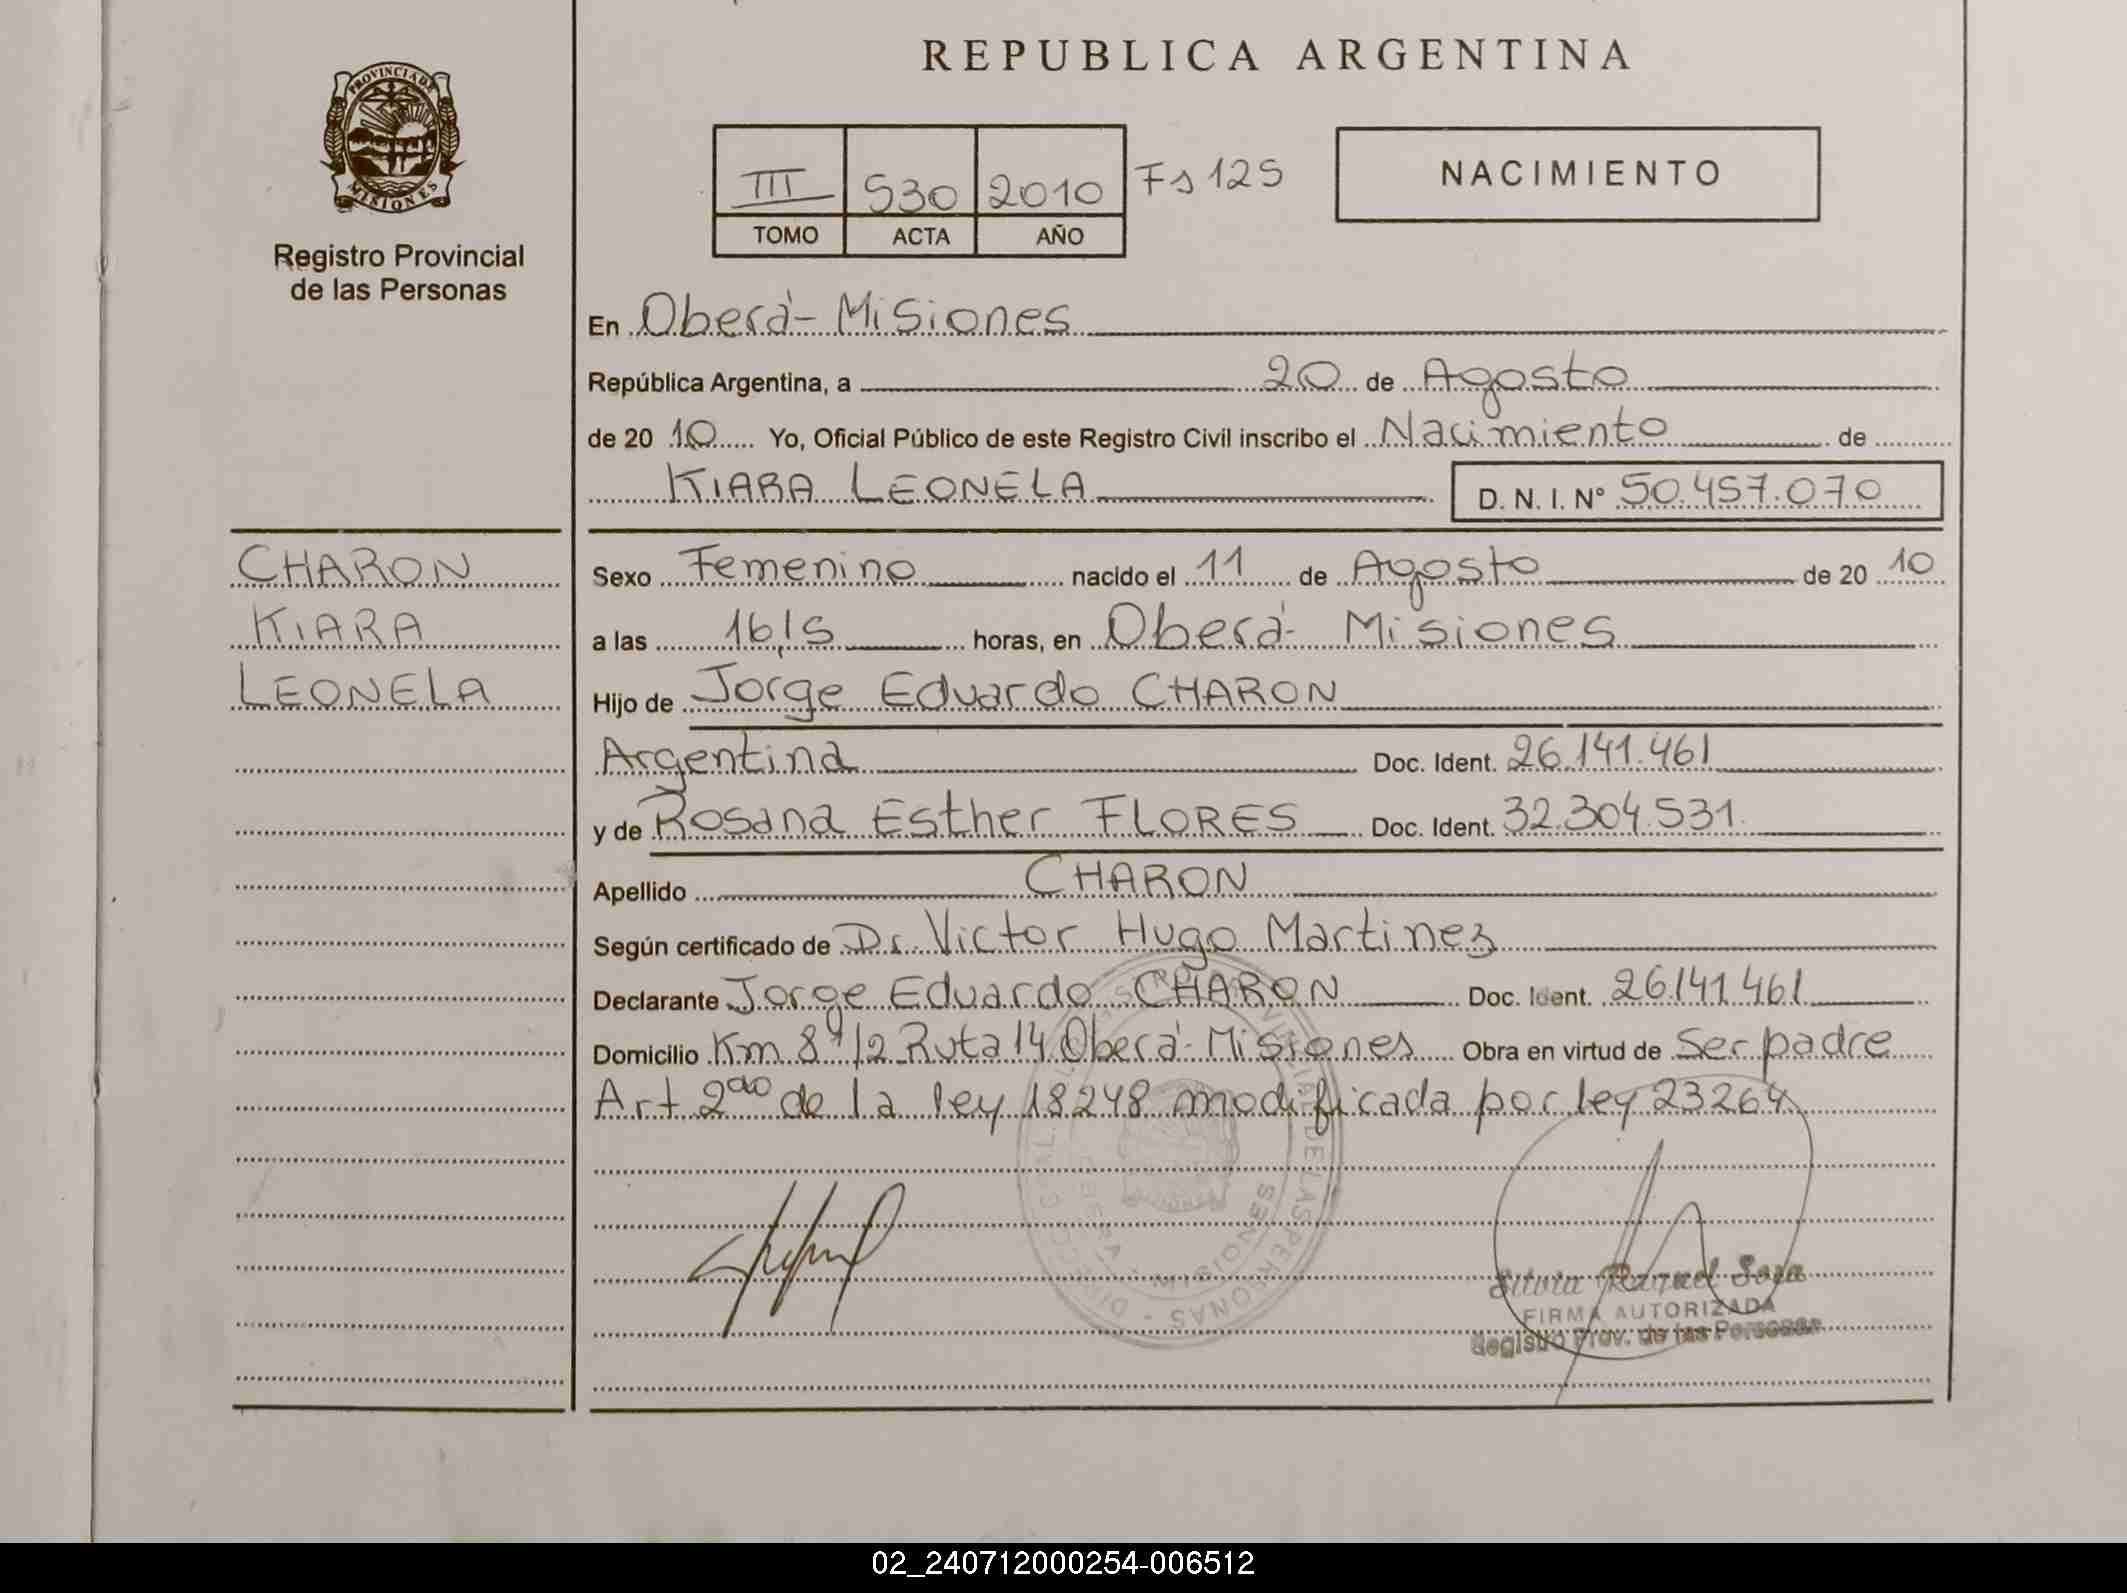 REPUBLICA ARGENTINA
PROVINCIA DE MISIONES
Registro Provincial
de las Personas
III 530 2010 Fs 125
TOMO ACTA AÑO
NACIMIENTO
En Oberá - Misiones
República Argentina, a 20 de Agosto
de 20 10 Yo, Oficial Público de este Registro Civil inscribo el Nacimiento de
KIARA LEONELA D. N. I. N° 50.457.070
CHARON
KIARA
LEONELA
Sexo Femenino nacido el 11 de Agosto de 20 10
a las 16,15 horas, en Oberá - Misiones
Hijo de Jorge Eduardo CHARON
Argentina Doc. Ident. 26.141.461
y de Rosana Esther FLORES Doc. Ident. 32.304.531.
Apellido CHARON
Según certificado de Dr. Victor Hugo Martinez
Declarante Jorge Eduardo CHARON Doc. Ident. 26.141.461
Domicilio Km 8 1/2 Ruta 14 Oberá - Misiones Obra en virtud de Ser padre
Art 2do de la ley 18248 modificada por ley 23264
Silvia Raquel Sosa
FIRMA AUTORIZADA
Registro Prov. de las Personas
02_240712000254-006512